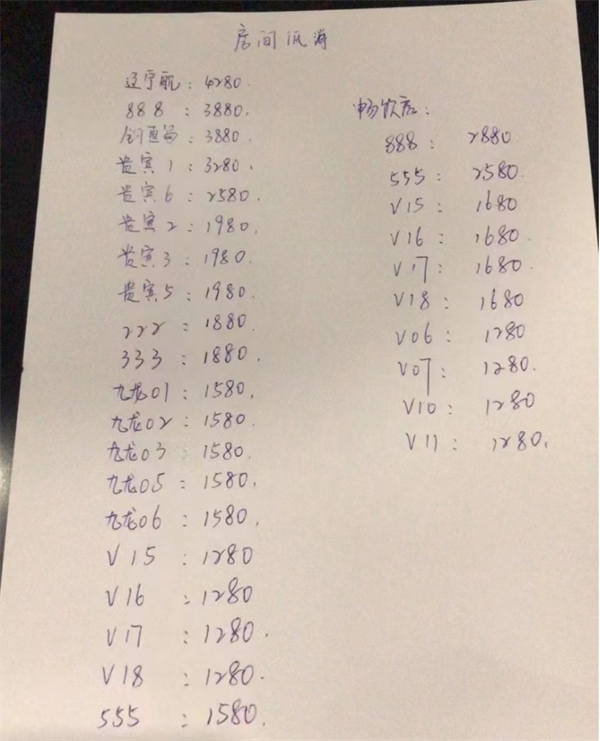 房间低消
辽宁舰：4280.
888：3880.
3880.
贵宾1：3280.
贵宾6：2580.
贵宾2：1980.
贵宾3：1980.
贵宾5：1980.
222：1880.
333：1880.
九龙01：1580.
九龙02：1580.
九龙03：1580.
九龙05：1580.
九龙06：1580.
V15：1280
V16：1280
V17：1280.
V18：1280.
555：1580.
畅饮房：
888：2880.
555：2580.
V15：1680
V16：1680
V17：1680.
V18：1680
V06：1280
V07：1280.
V10：1280
V11：1280.